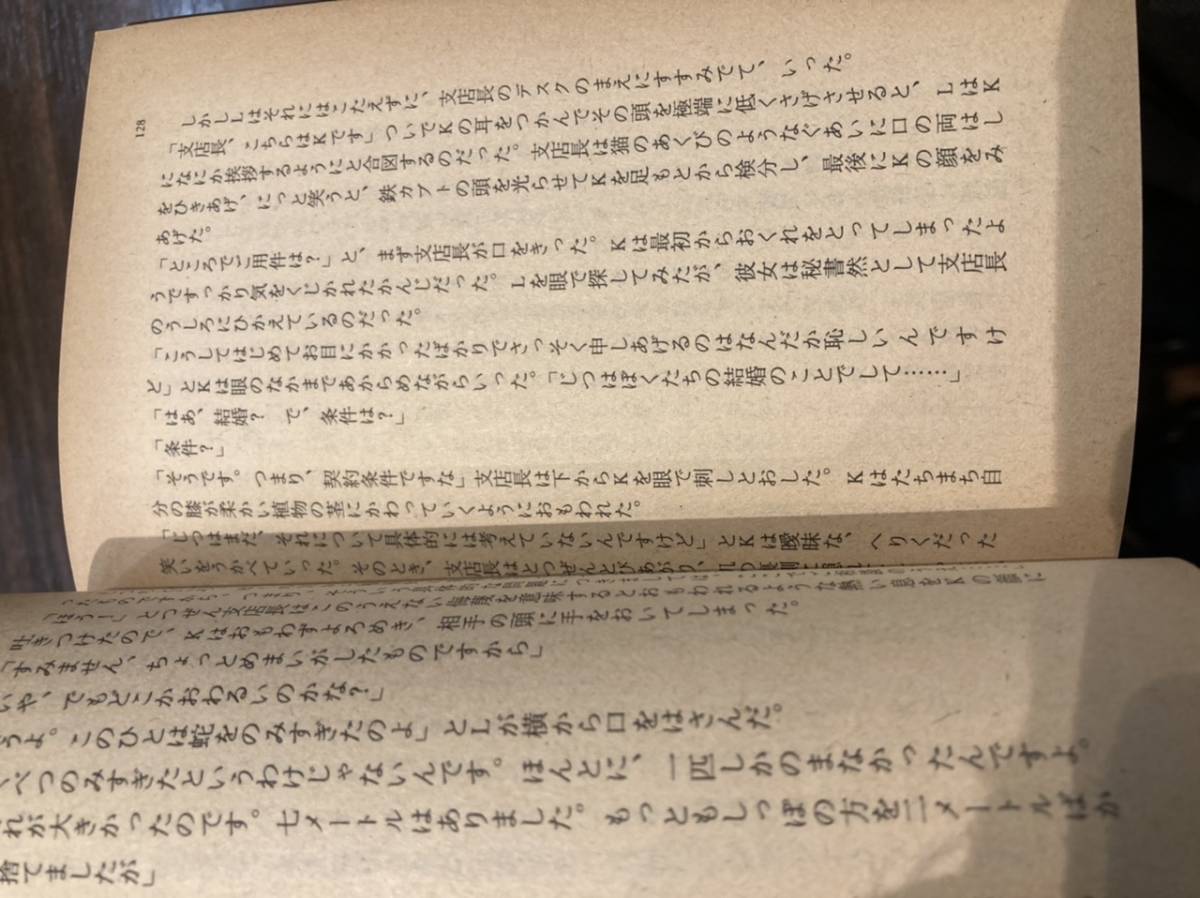 128
しかしLはそれにはこたえずに、支店長のデスクのまえにすすみでて、いった。
「支店長、こちらはKです」ついでKの耳をつかんでその頭を極端に低くさげさせると、LはK
になにか挨拶するようにと合図するのだった。支店長は猫のあくびのようなぐあいに口の両はし
をひきあげ、にっと笑うと、鉄カブトの頭を光らせてKを足もとから検分し、最後にKの顔をみ
あげた。
「ところでご用件は?」と、まず支店長が口をきった。Kは最初からおくれをとってしまったよ
うですっかり気をくじかれたかんじだった。Lを眼で探してみたが、彼女は秘書然として支店長
のうしろにひかえているのだった。
「こうしてはじめてお目にかかったばかりでさっそく申しあげるのはなんだか恥しいんですけ
ど」とKは眼のなかまであからめながらいった。「じつはぼくたちの結婚のことでして……」
「はあ、結婚? で、条件は?」
「条件?」
「そうです。つまり、契約条件ですな」支店長は下からKを眼で刺しとおした。Kはたちまち自
分の膝が柔かい植物の茎にかわっていくようにおもわれた。
「じつはまだ、それについて具体的には考えていないんですけど」とKは曖昧な、へりくだった
笑いをうかべていった。そのとき、支店長はとつぜんとびあがり、
「ほう!」とつぜん支店長はこのうえない侮蔑を意味するとおもわれるような熱い息をKの顔に
吐きつけたので、Kはおもわずよろめき、相手の頭に手をおいてしまった。
「すみません、ちょっとめまいがしたものですから」
いや、でもどこかおわるいのかな?」
うよ。このひとは蛇をのみすぎたのよ」とLが横から口をはさんだ。
べつのみすぎたというわけじゃないんです。ほんとに、一匹しかのまなかったんですよ。
れが大きかったのです。七メートルはありました。もっともしっぽの方を二メートルばか
捨てましたが」